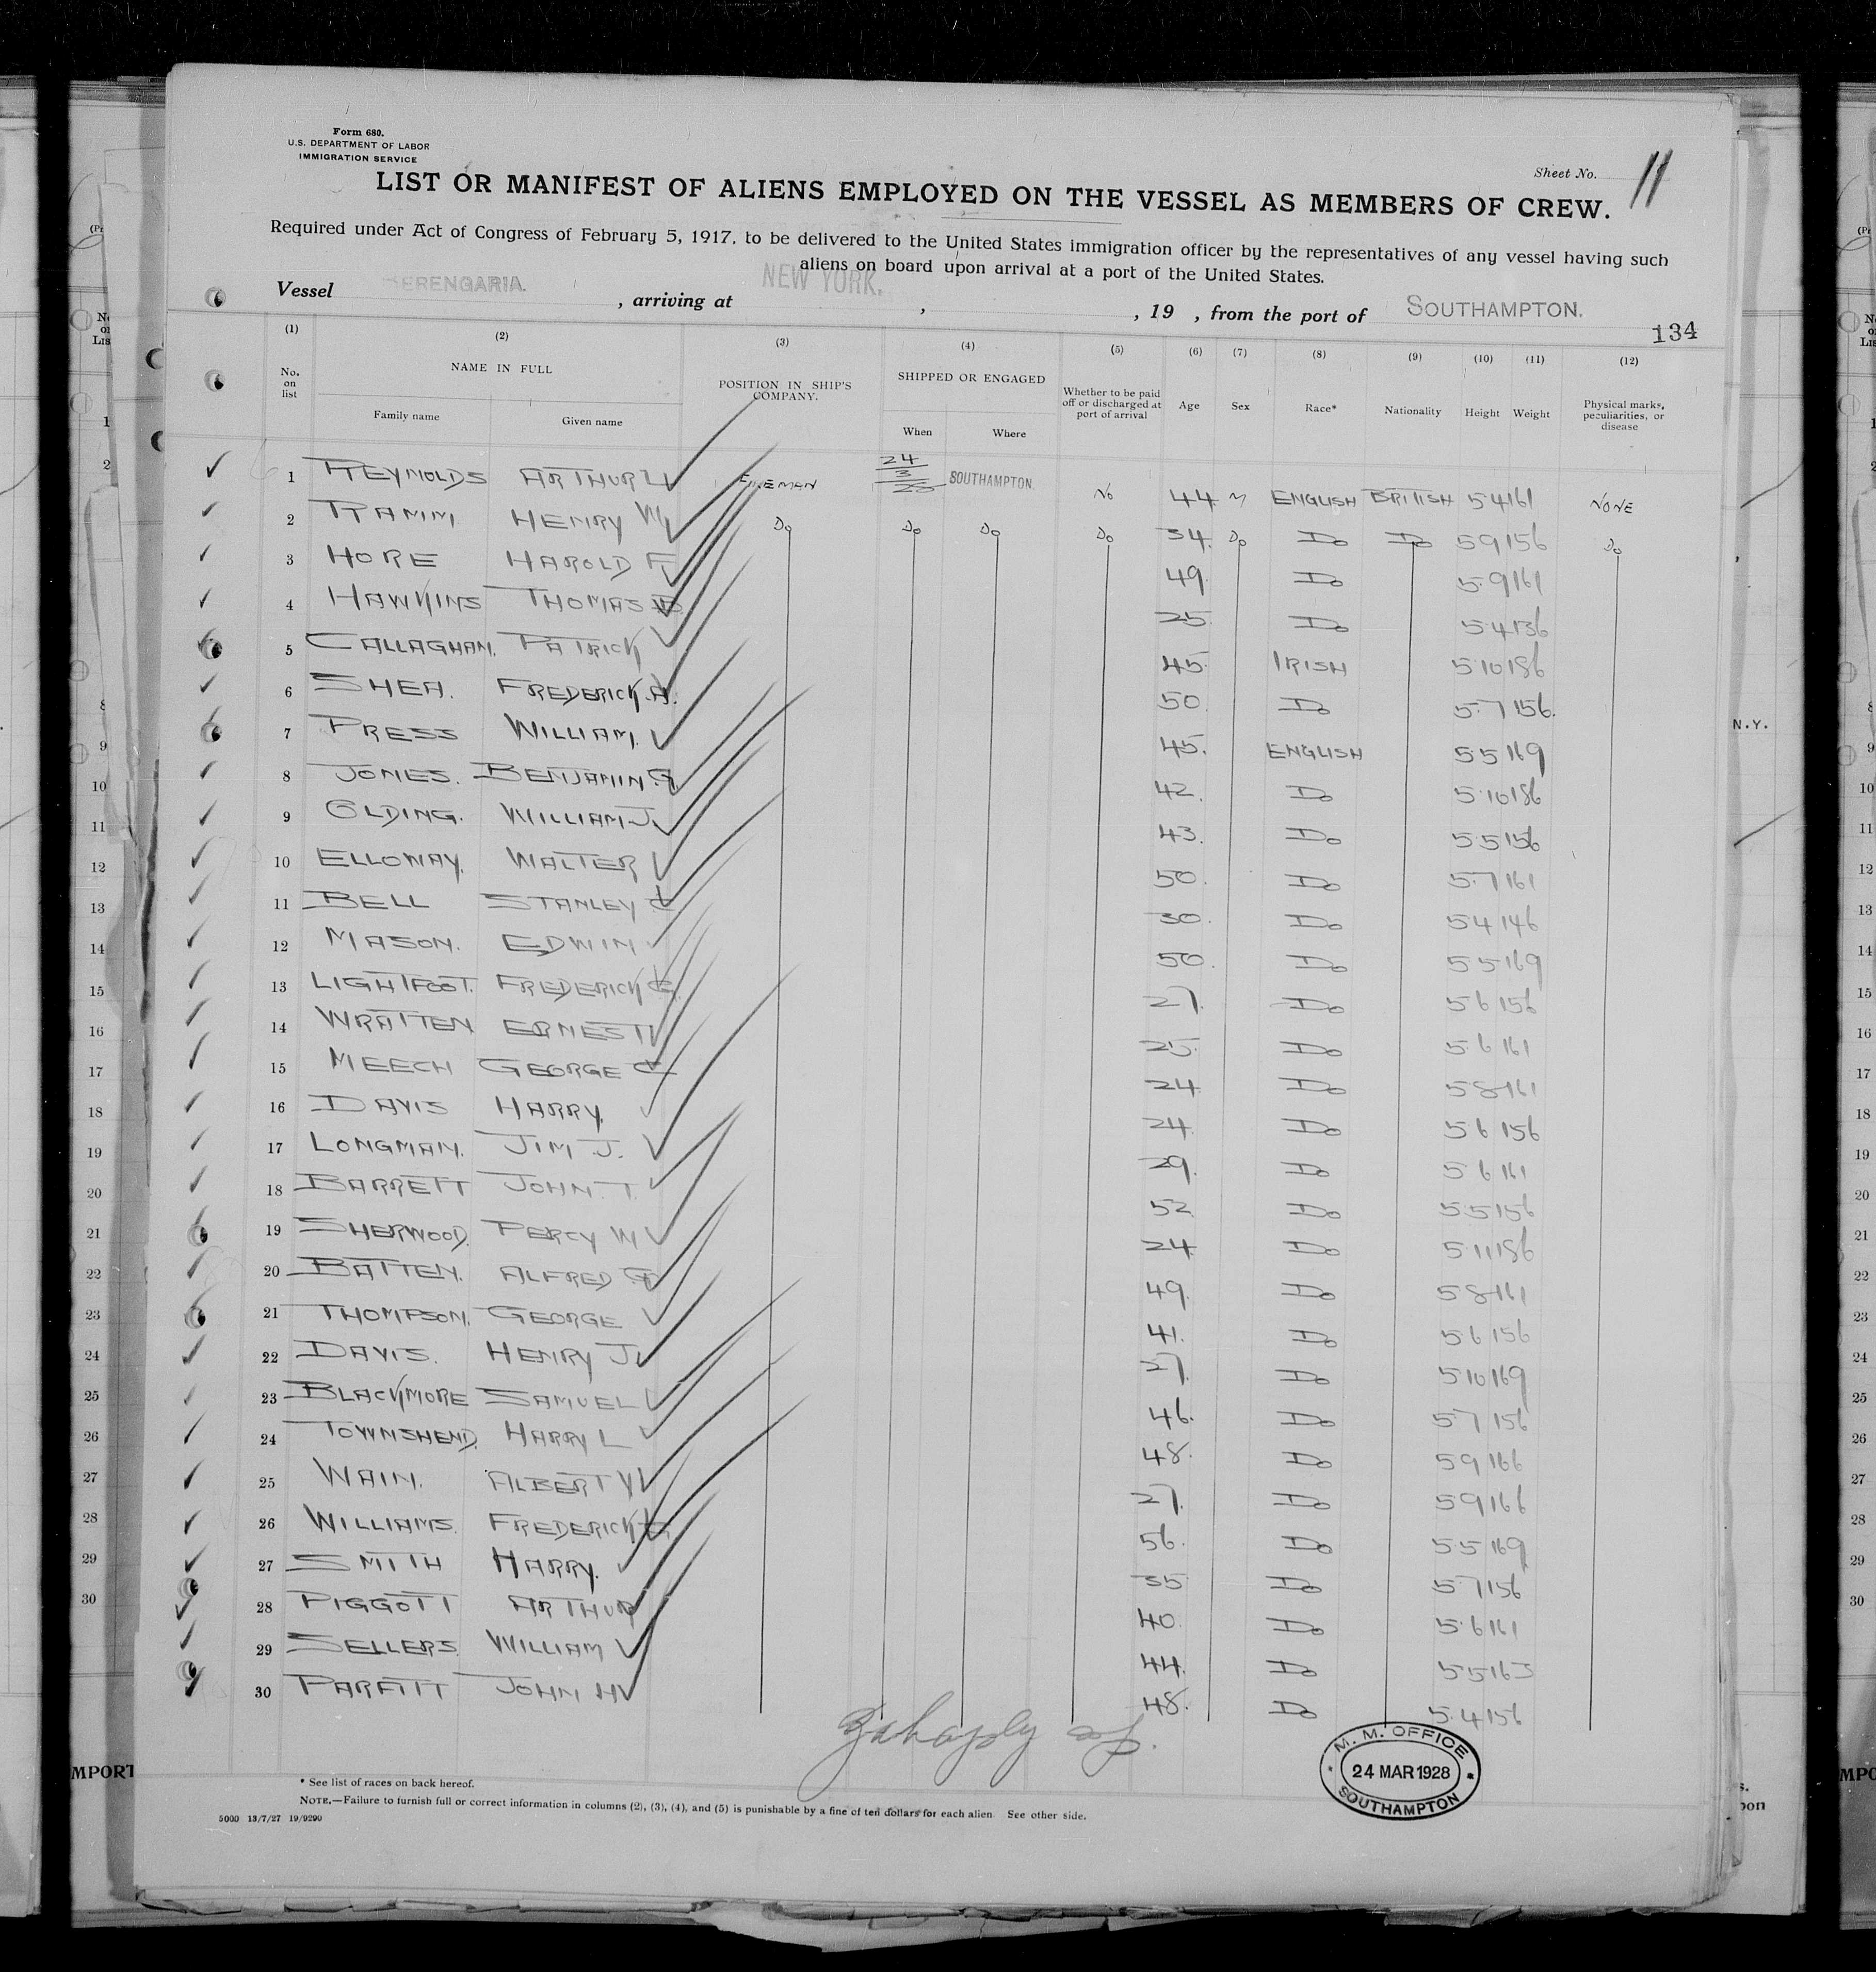 Form 680.
U.S. DEPARTMENT OF LABOR
IMMIGRATION SERVICE
Sheet No. 11
LIST OR MANIFEST OF ALIENS EMPLOYED ON THE VESSEL AS MEMBERS OF CREW.
Required under Act of Congress of February 5, 1917, to be delivered to the United States immigration officer by the representatives of any vessel having such
aliens on board upon arrival at a port of the United States.
Vessel BERENGARIA. , arriving at NEW YORK. , , 19 , from the port of SOUTHAMPTON.
134
(1) (2) (3) (4) (5) (6) (7) (8) (9) (10) (11) (12)
No. on list NAME IN FULL Family name Given name POSITION IN SHIP'S COMPANY. SHIPPED OR ENGAGED When Where Whether to be paid off or discharged at port of arrival Age Sex Race* Nationality Height Weight Physical marks, peculiarities, or disease
1 REYNOLDS ARTHUR FIREMAN 24/3/28 SOUTHAMPTON. No 44 M ENGLISH BRITISH 5 4 161 NONE
2 HENRY W Do Do Do Do 34. Do Do Do 5 9 156 Do
3 HORE HAROLD F 49. Do 5.9 161
4 HAWKINS THOMAS B. 25 Do 5.4 136
5 CALLAGHAN. PATRICK 45. IRISH 5 10 186
6 SHEA. FREDERICK A. 50. Do 5.7 156.
7 PRESS WILLIAM. 45. ENGLISH 5 5 169
8 JONES. BENJAMIN G. 42. Do 5.10 186
9 OLDING. WILLIAM J. 43. Do 5.5 156
10 ELLOWAY. WALTER 50. Do 5.7 161
11 BELL STANLEY C 30. Do 5 4 146
12 MASON. EDWIN 50. Do 5 5 169
13 LIGHTFOOT. FREDERICK G. 27. Do 5 6 156
14 WRATTEN ERNEST 25. Do 5.6 161
15 MEECH GEORGE C 24 Do 5 8 161
16 DAVIS HARRY. 24. Do 5 6 156
17 LONGMAN. JIM J. 29. Do 5 6 161
18 BARRETT JOHN. T. 52 Do 5.5 156
19 SHERWOOD. PERCY W 24 Do 5.11 186
20 BATTEN. ALFRED G 49. Do 5 8 161
21 THOMPSON. GEORGE 41. Do 5 6 156
22 DAVIS. HENRY J. 27. Do 5 10 169
23 BLACKMORE SAMUEL 46. Do 5 7 156
24 TOWNSHEND. HARRY L 48. Do 5 9 166
25 WAIN. ALBERT W 27. Do 5 9 166
26 WILLIAMS. FREDERICK G. 56. Do 5.5 169
27 SMITH HARRY. 35 Do 5.7 156
28 PIGGOTT ARTHUR 40. Do 5.6 161
29 SELLERS. WILLIAM 44. Do 5 5 163
30 PARFITT JOHN H 48. Do 5.4 156
M. M. OFFICE
24 MAR 1928
SOUTHAMPTON
* See list of races on back hereof.
NOTE.—Failure to furnish full or correct information in columns (2), (3), (4), and (5) is punishable by a fine of ten dollars for each alien See other side.
5000 13/7/27 19/9290
N.Y.